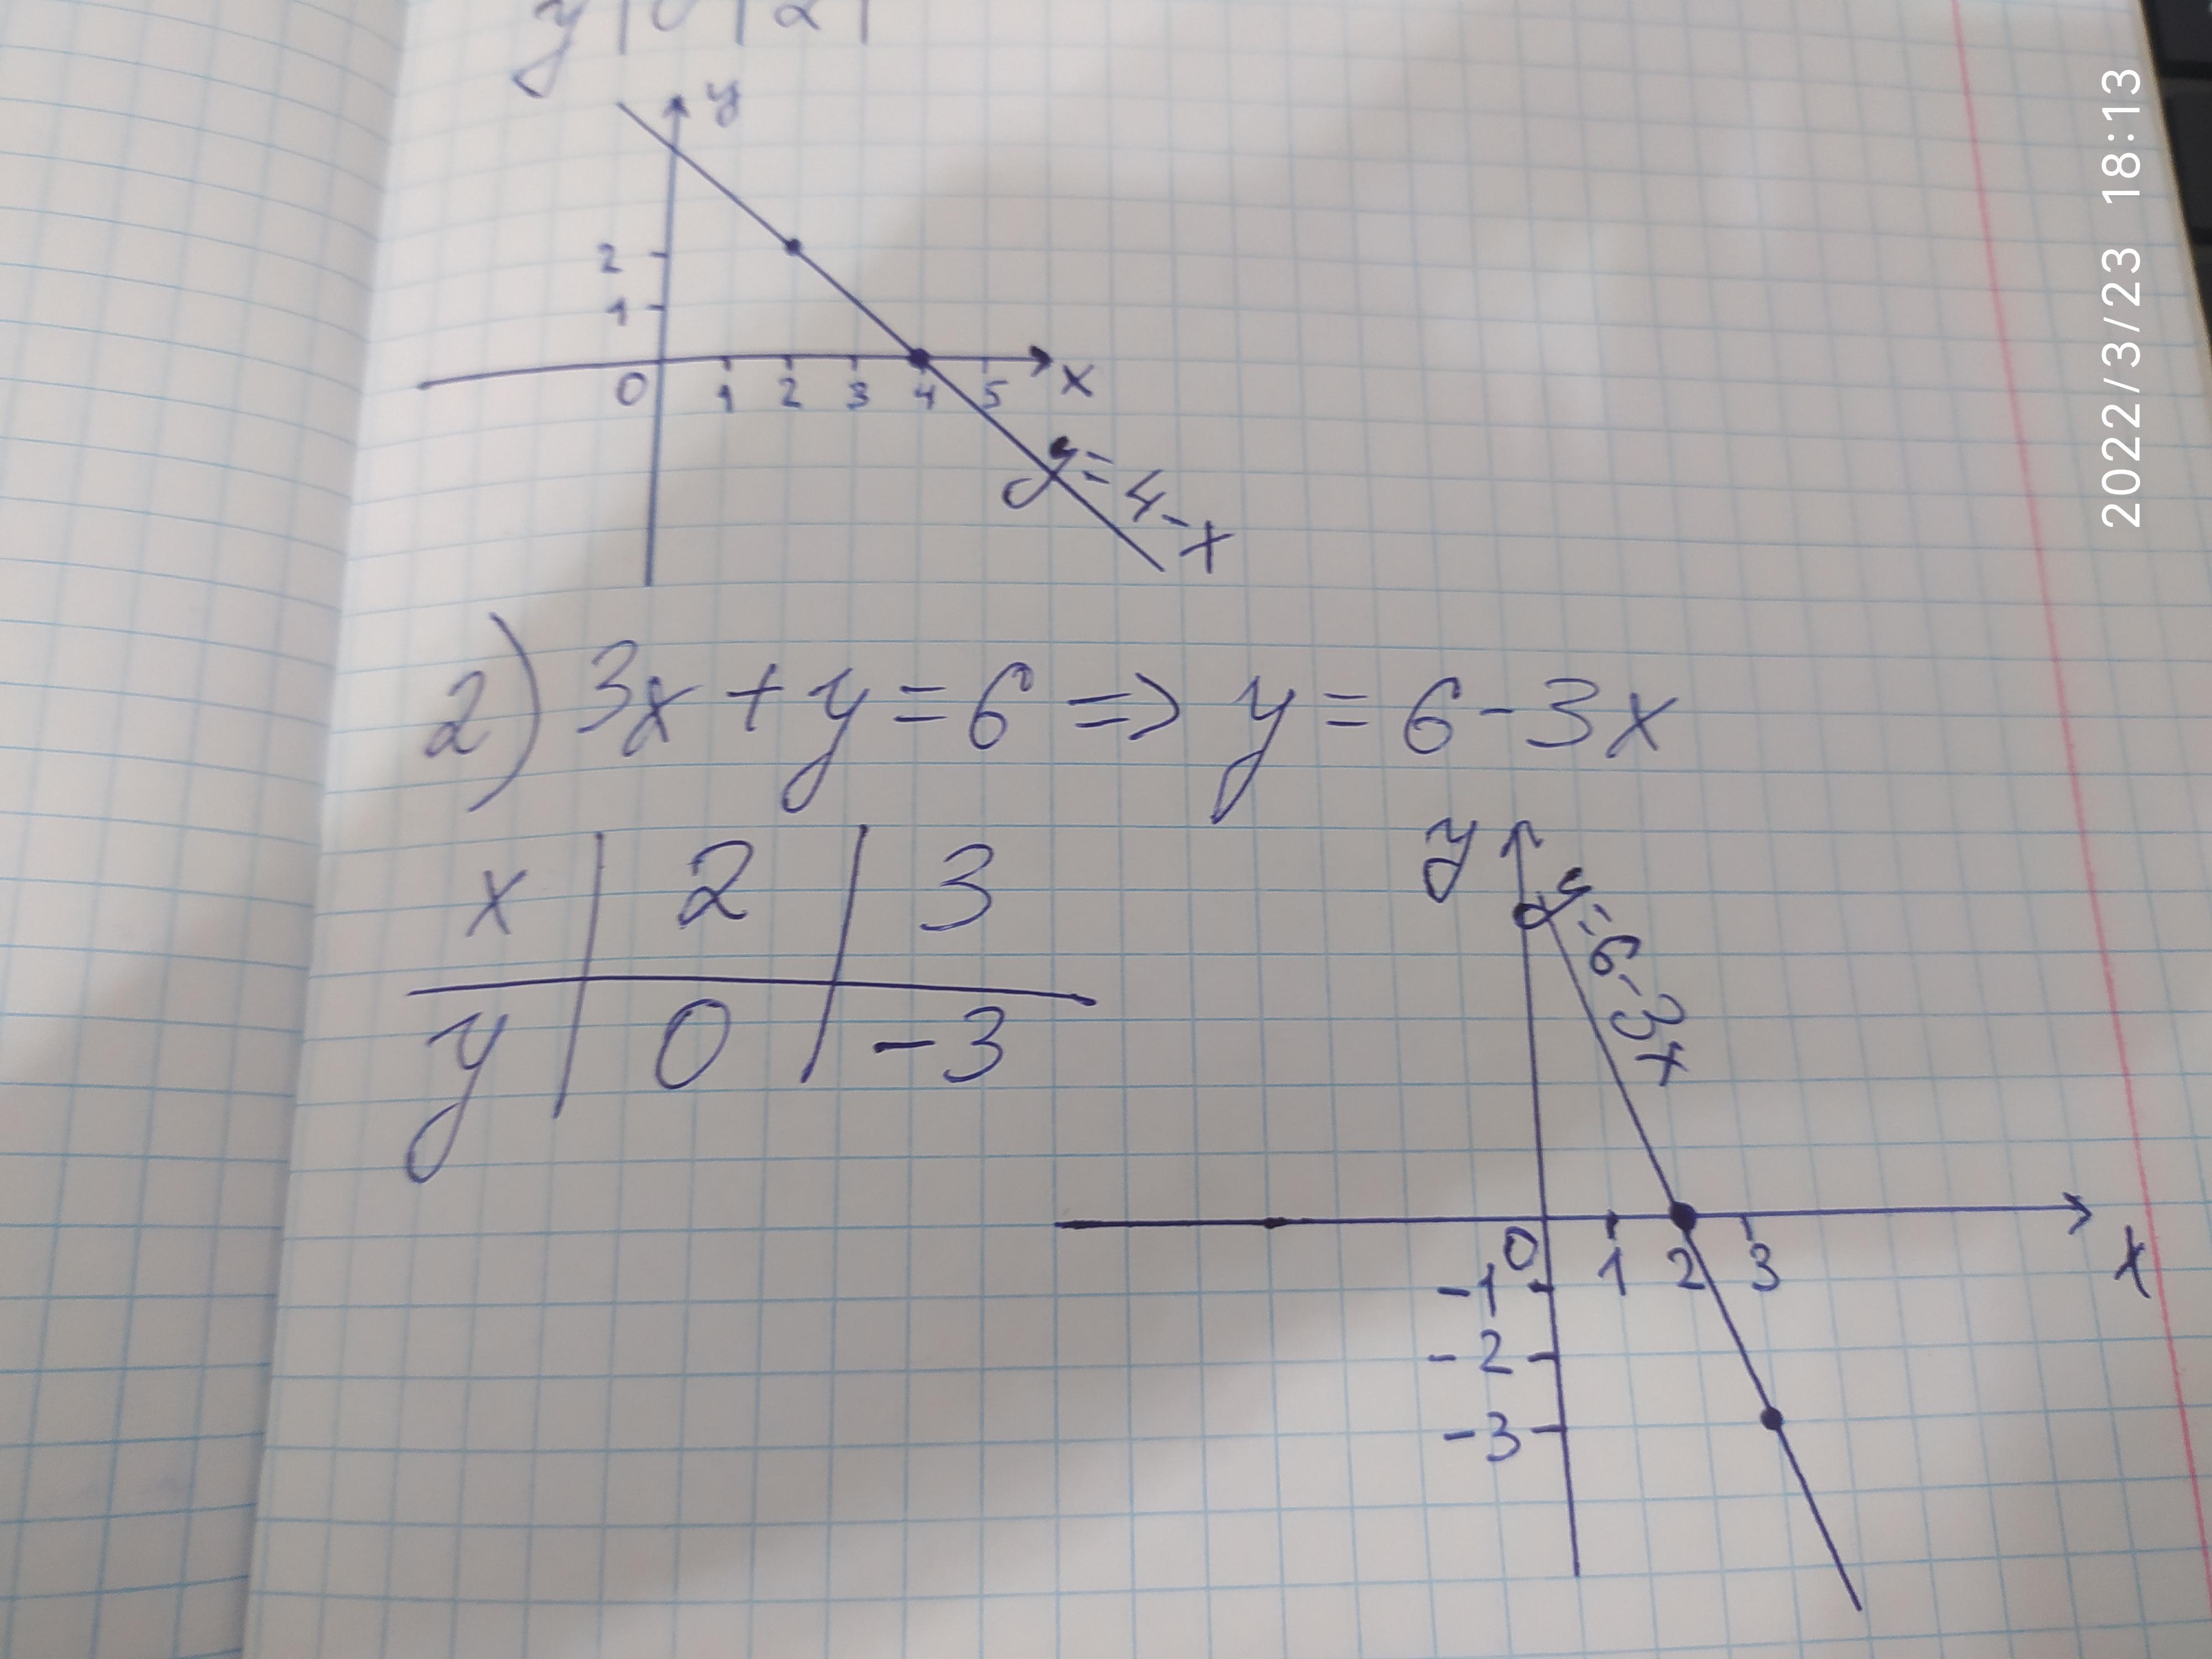 y | 0 | 2 |
y
2
1
0 1 2 3 4 5 x
y = 4 - x
2) 3x + y = 6 => y = 6 - 3x
x | 2 | 3
y | 0 | -3
y
y = 6 - 3x
0 1 2 3 x
-1
-2
-3
2022/3/23 18:13